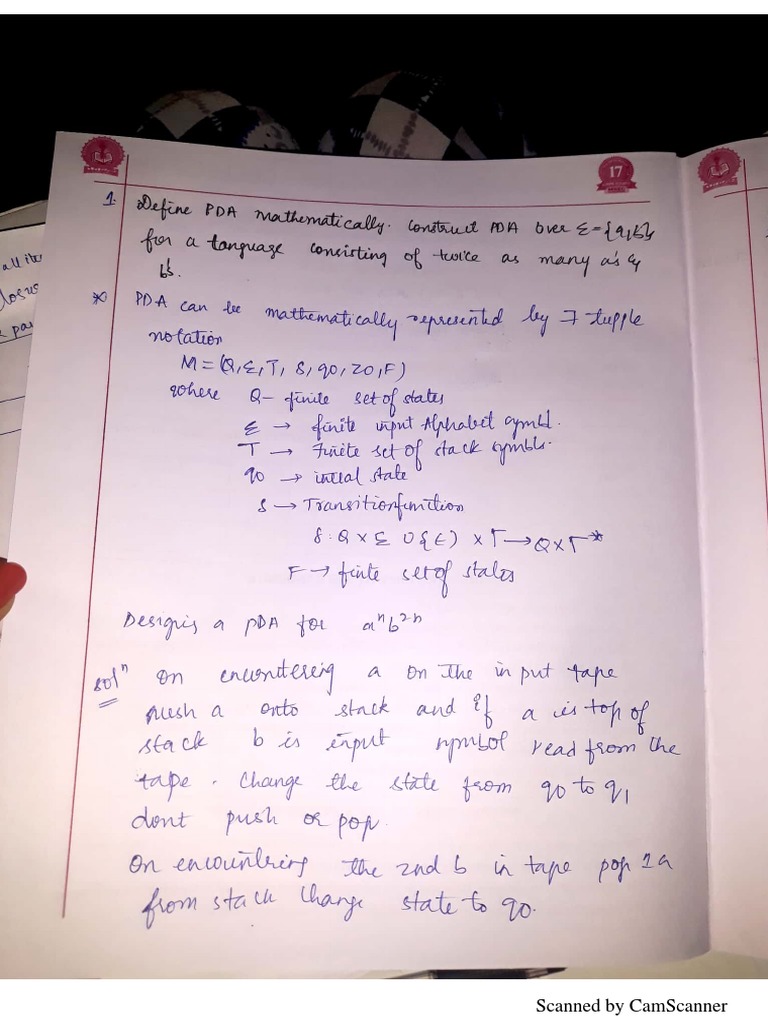 17
1. Define PDA mathematically. Construct PDA over Σ={a,b}
for a language consisting of twice as many a's &
b's.
all ite
losus
* PDA can be mathematically represented by 7 tupple
notation
M = (Q, Σ, T, δ, q0, z0, F)
where Q - finite set of states
Σ → finite input Alphabet symbl.
T → Finite set of stack symbls.
q0 → intial state
δ → Transition function
δ: Q × Σ ∪ {ε} × Γ → Q × Γ*
F → finite set of states
Design a PDA for aⁿb²ⁿ
solⁿ On encountering a on the input tape
push a onto stack and if a is top of
stack b is input symbol read from the
tape. Change the state from q0 to q1
dont push or pop.
On encountring the 2nd b in tape pop 1a
from stack change state to q0.
Scanned by CamScanner